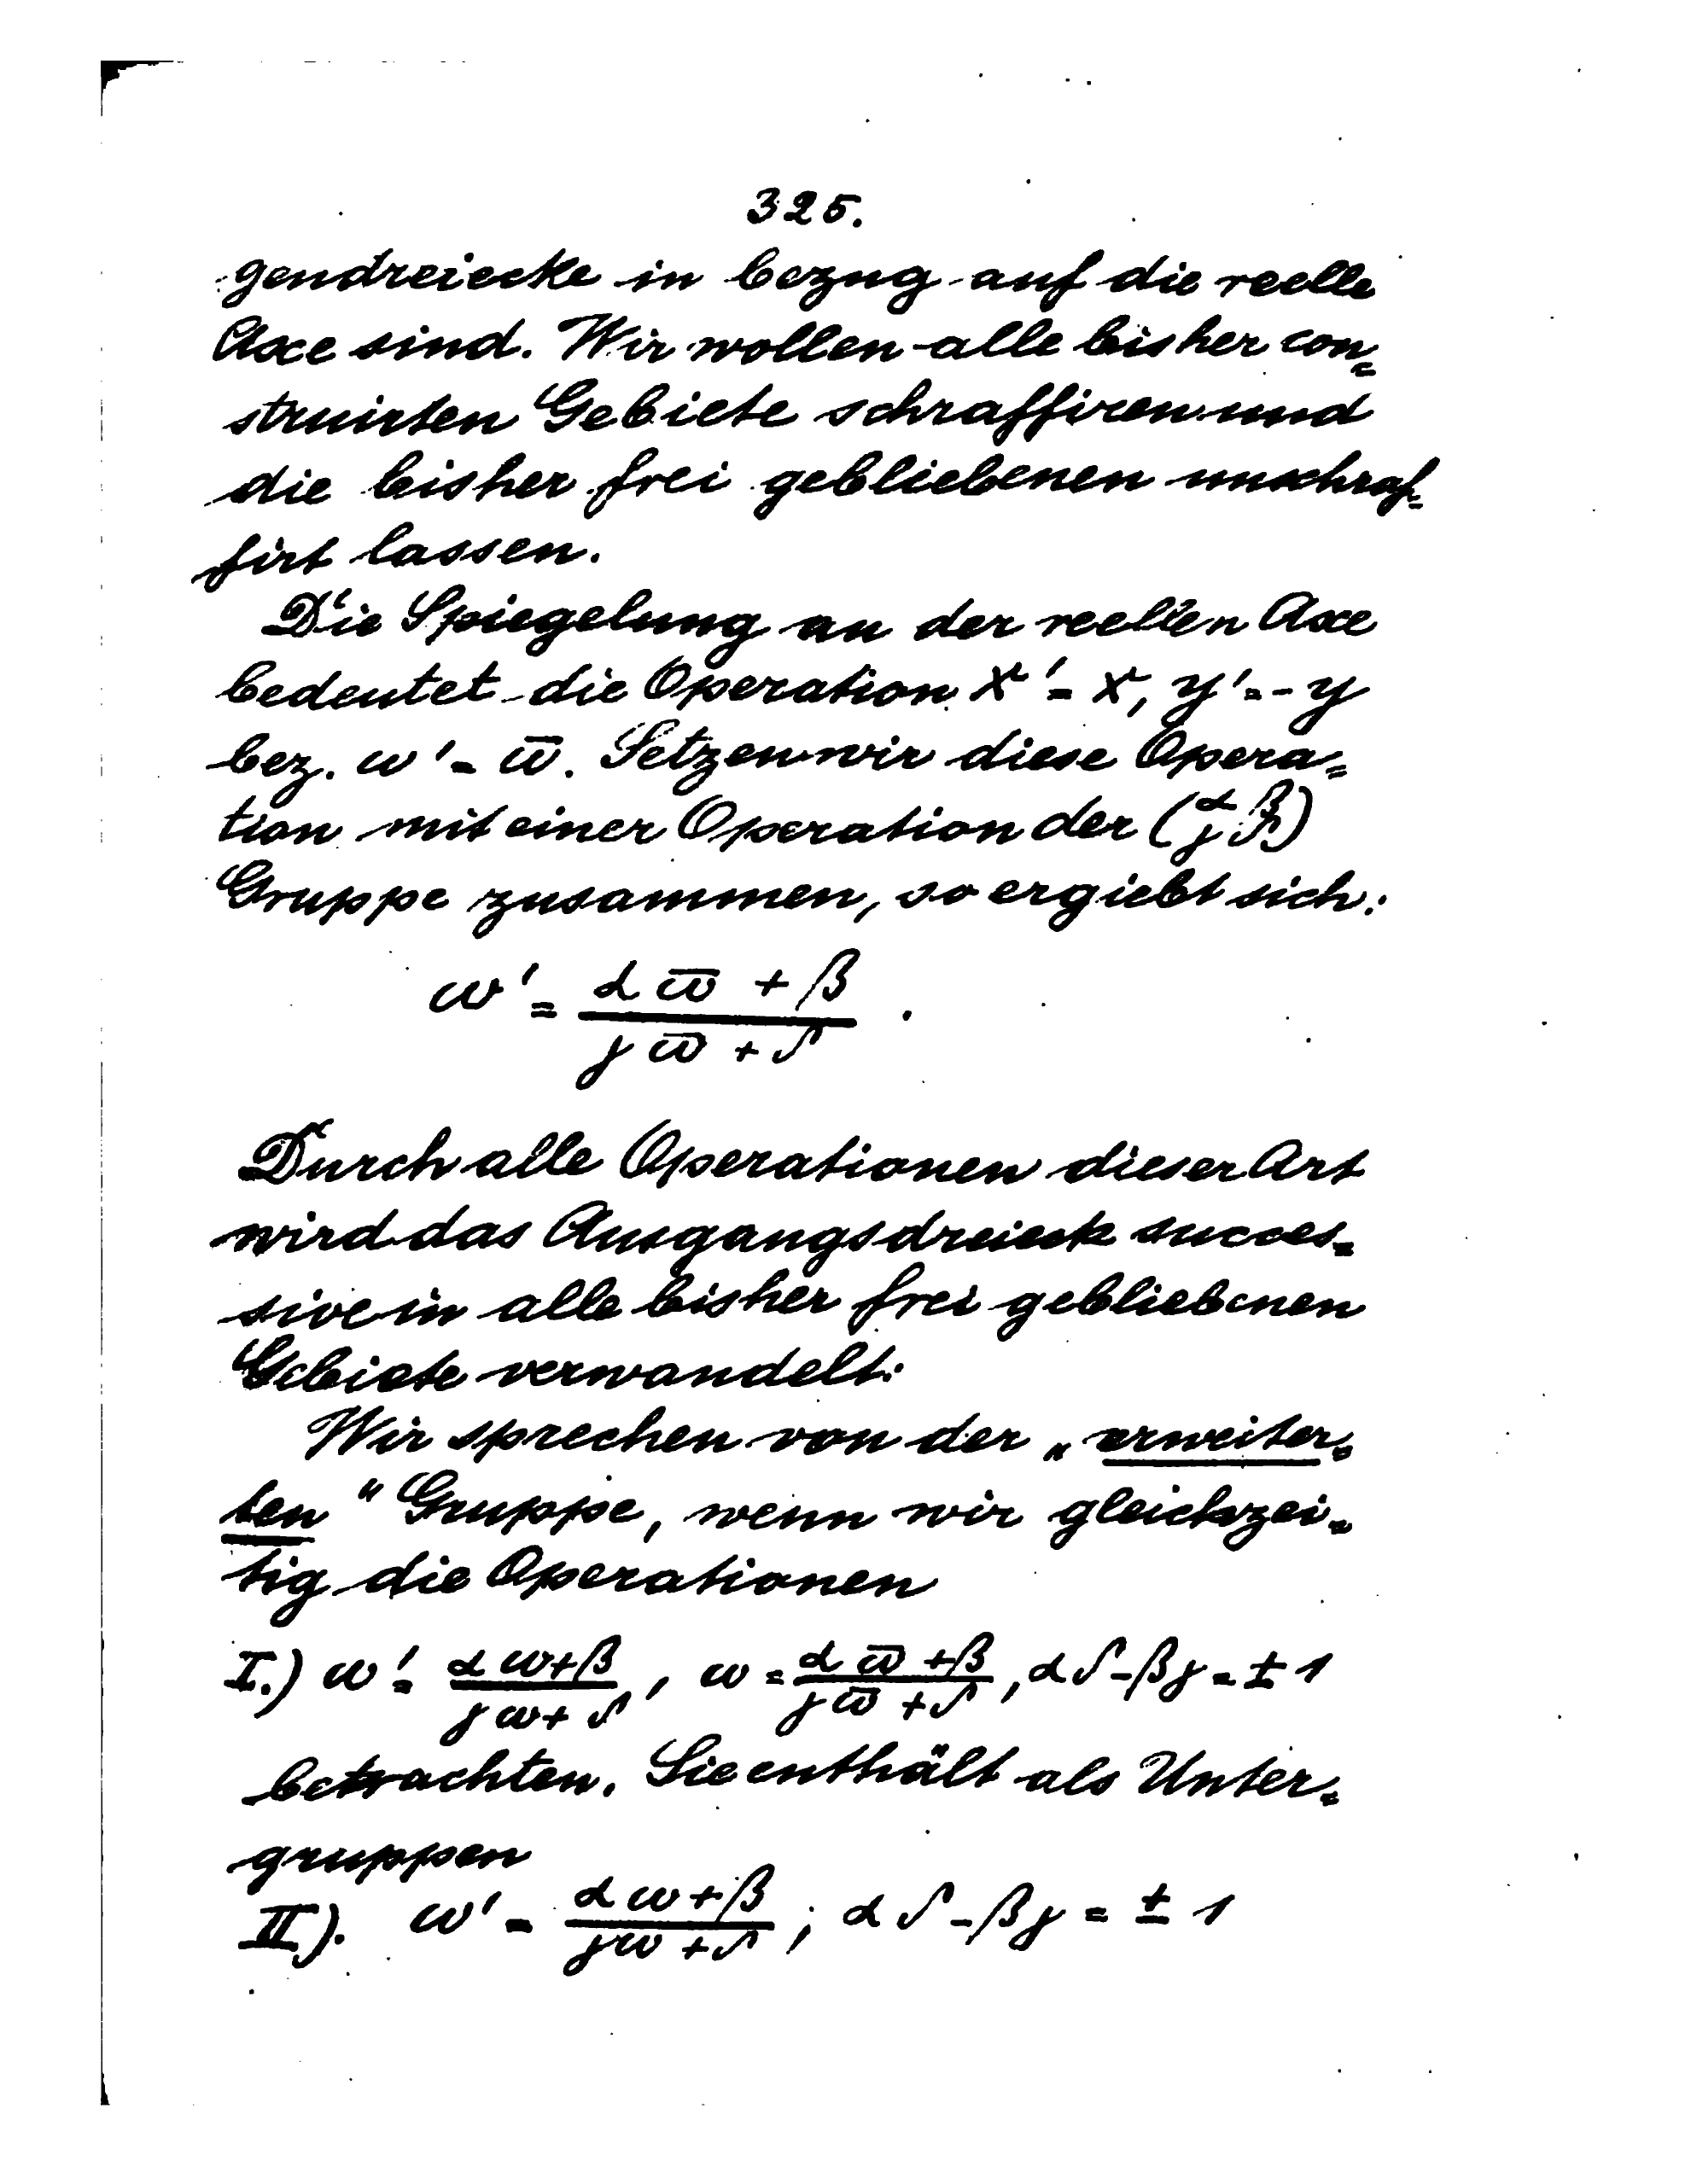 325.
gendreiecke in bezug auf die reelle
Axe sind. Wir wollen alle bisher con=
struirten Gebiete schraffiren und
die bisher frei gebliebenen unschraf=
firt lassen.
Die Spiegelung an der reellen Axe
bedeutet die Operation x' = x, y' = -y
bez. ω' = ω̅. Setzen wir diese Opera=
tion mit einer Operation der (α β / γ δ)
Gruppe zusammen, so ergiebt sich:
ω' = (α ω̅ + β) / (γ ω̅ + δ).
Durch alle Operationen dieser Art
wird das Ausgangsdreieck succes=
sive in alle bisher frei gebliebenen
Gebiete verwandelt.
Wir sprechen von der „erweiter=
ten" Gruppe, wenn wir gleichzei=
tig die Operationen
I.) ω' = (α ω + β) / (γ ω + δ), ω = (α ω̅ + β) / (γ ω̅ + δ), α δ - β γ = ± 1
betrachten. Sie enthält als Unter=
gruppen
II). ω' = (α ω + β) / (γ ω + δ); α δ - β γ = ± 1